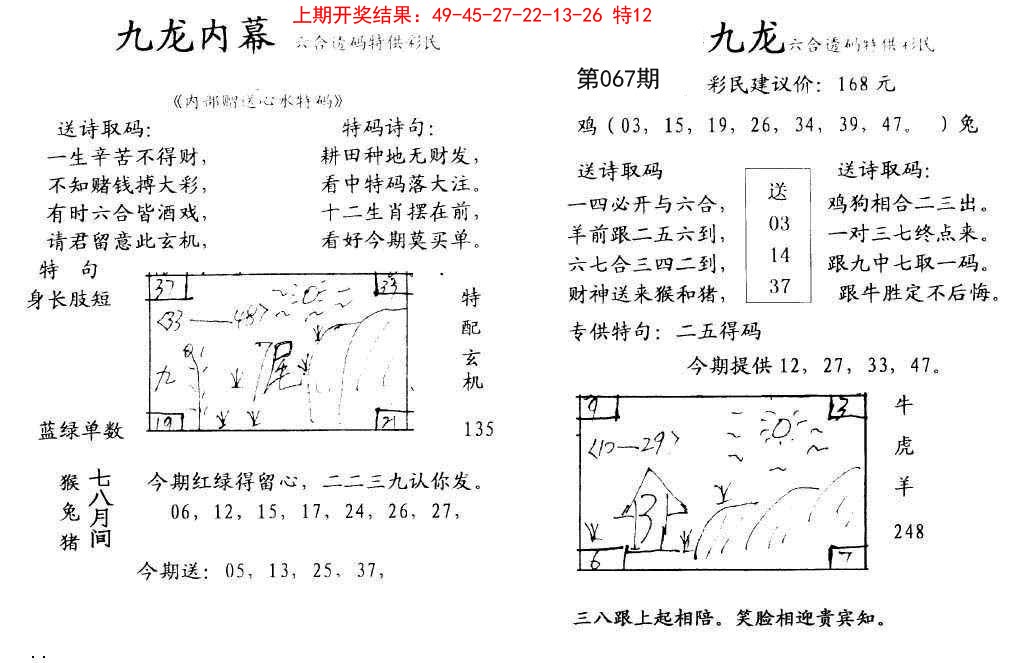 上期开奖结果：49-45-27-22-13-26 特12
九龙内幕 六合透码特供彩民
《内部赠送心水特码》
送诗取码：
一生辛苦不得财，
不知赌钱搏大彩，
有时六合皆酒戏，
请君留意此玄机，
特码诗句：
耕田种地无财发，
看中特码落大注。
十二生肖摆在前，
看好今期莫买单。
特 句
身长肢短
蓝绿单数
37
33
<33——48>
九
尾
19
21
特
配
玄
机
135
猴
兔
猪
七八月间
今期红绿得留心，二二三九认你发。
06，12，15，17，24，26，27，
今期送：05，13，25，37，
九龙 六合透码特供彩民
第067期
彩民建议价：168 元
鸡（03，15，19，26，34，39，47。 ）兔
送诗取码
一四必开与六合，
羊前跟二五六到，
六七合三四二到，
财神送来猴和猪，
送
03
14
37
送诗取码：
鸡狗相合二三出。
一对三七终点来。
跟九中七取一码。
跟牛胜定不后悔。
专供特句：二五得码
今期提供 12，27，33，47。
9
3
<10—29>
3
6
7
牛
虎
羊
248
三八跟上起相陪。笑脸相迎贵宾知。